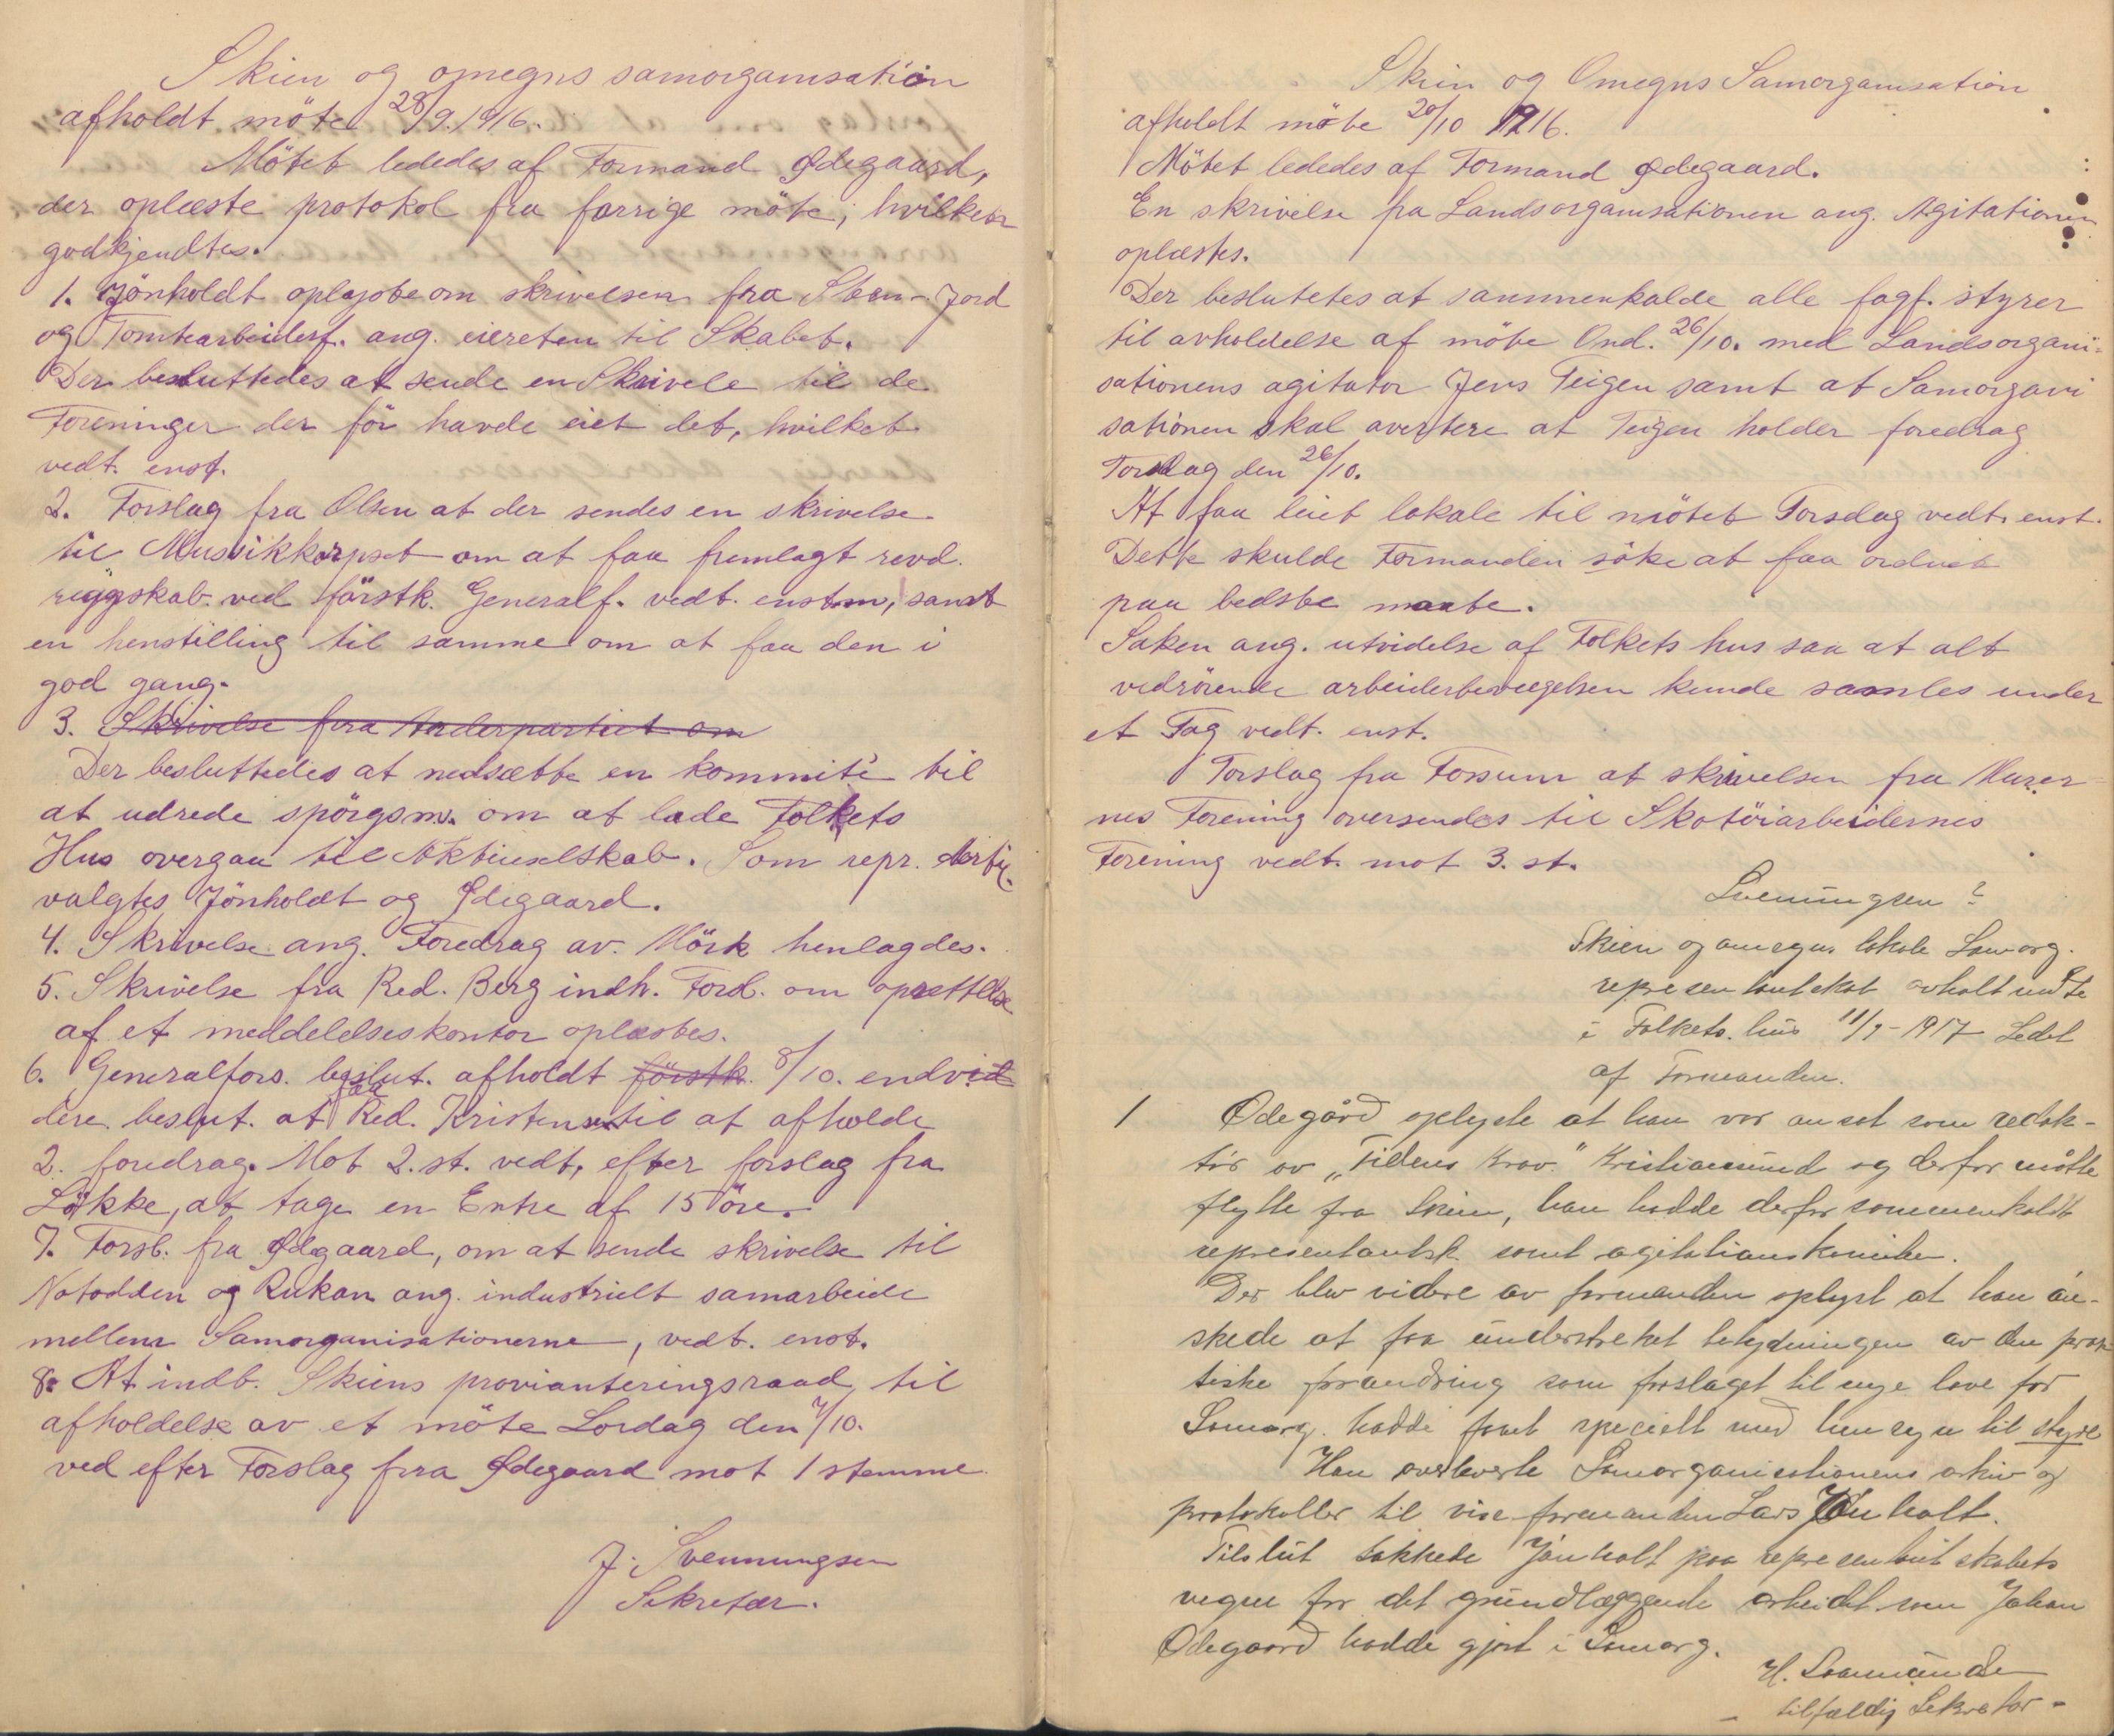 Skien og omegns samorganisation
afholdt möte 28/9. 1916.
Mötet lededes af Formand Ødegaard,
der oplæste protokol fra forrige möte, hvilken
godkjendtes.
1. Jönholdt oplyste om skrivelsen fra Sten- Jord
og Tomtearbeiderf. ang. eiereten til Skabet.
Der besluttedes at sende en Skrivele til de
Foreninger der för havde eiet det, hvilket
vedt. enst.
2. Forslag fra Olsen at der sendes en skrivelse
til Mussikkorpset om at faa fremlagt revd.
regnskab ved förstk. Generalf. vedt. enstm, samt
en henstilling til samme om at faa den i
god gang.
3. Skrivelse fra Arderpartiet om
Der besluttedes at nedsætte en kommité til
at udrede spörgsm. om at lade Folkets
Hus overgaa til Aktieselskab. Som repr. dertil
valgtes Jönholdt og Ødegaard.
4. Skrivelse ang. Foredrag av Mörk henlagdes.
5. Skrivelse fra Red. Berg indh. Ford. om oprettelse
af et meddelelseskontor oplæstes.
6. Generalfors. beslut. afholdt förstk. 8/10. endvid
dere beslut. at faa Red. Kristensen til at afholde
2. foredrag. Mot 2. st. vedt, efter forslag fra
Lökke, at tage en Entre af 15 öre.
7. Forsl. fra Ødegaard, om at sende skrivelse til
Notodden og Rukan ang. industrielt samarbeide
mellem Samorganisationerne, vedt. enst.
8. At indb. Skiens provianteringsraad til
afholdelse av et möte Lordag den 7/10.
ved efter Forslag fra Ødegaard mot 1 stemme
J. Svennungsen
Sekretær.
Skien og Omegns Samorganisation
afholdt möte 20/10 1916.
Mötet lededes af Formand Ødegaard.
En skrivelse fra Landsorganisationen ang. Agitationen
oplæstes.
Der beslutetes at sammenkalde alle fagf. styrer
til avholdelse af möte Ond. 26/10. med Landsorgani-
sationens agitator Jens Teigen samt at Samorgani
sationen skal avertere at Teigen holder foredrag
Torsdag den 26/10.
At faa leiet lokale til mötet Torsdag vedt. enst.
Dette skulde Formanden söke at faa ordnet
paa bedste maate.
Saken ang. utvidelse af Folkets hus saa at alt
vedrörende arbeiderbevægelsen kunde samles under
et Tag vedt. enst.
Forslag fra Fossum at skrivelsen fra Murer-
nes Forening oversendes til Skotöiarbeidernes
Forening vedt. mot 3. st.
Svenungsen
Skien og omegns lokale Samorg.
representantskab avholt møte
i Folkets hus 11/1-1917 Ledet
af Formanden.
1 Ødegård oplyste at han var ansat som redak-
tör av "Tidens Krav." Kristiansund og derfor måtte
flytte fra Skien, han hadde derfor sammenkaldt
representantsk. samt agitationskomiteen.
Der blev videre av formanden oplyst at han ön-
skede at faa understreket betydningen av den prak-
tiske forandring som forslaget til nye love for
Samorg. hadde faaet specielt med hensyn til styre
Han overleverte Samorganisationens arkiv og
protokoller til viseformanden Lars Jönholt.
Tilslut takkede Jönholt paa representantskabets
vegne for det grundlæggende arbeidet som Johan
Ødegaard hadde gjort i Samorg.
tilfældig Sekretær -